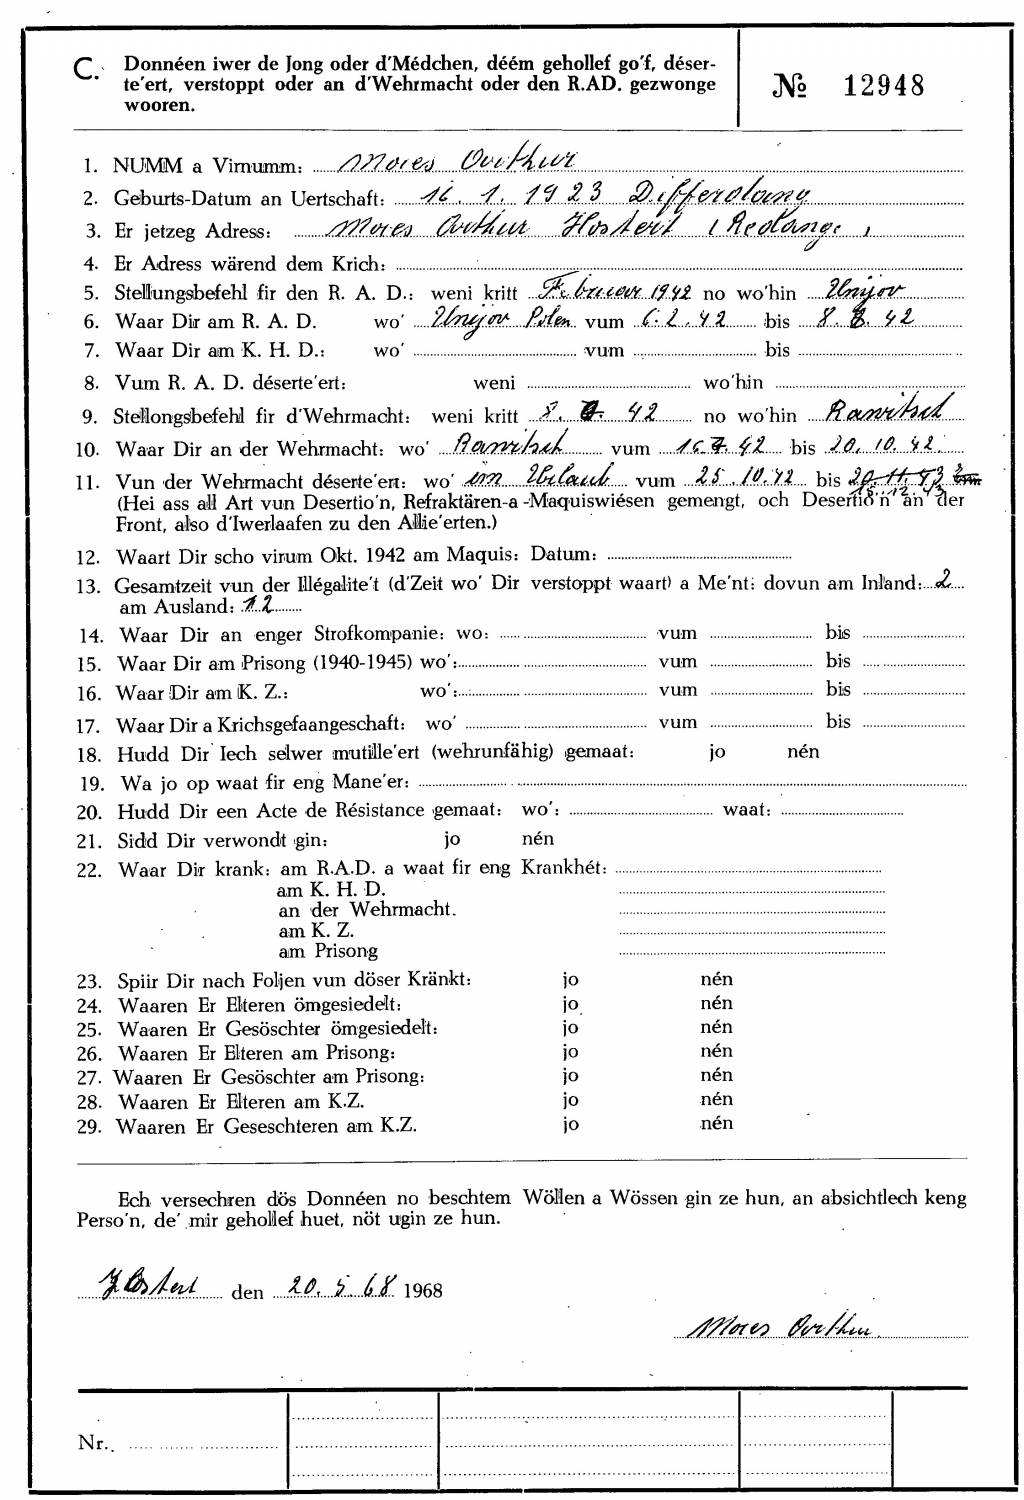 C. Donnéen iwer de Jong oder d'Médchen, déém gehollef go'f, déser-
te'ert, verstoppt oder an d'Wehrmacht oder den R.AD. gezwonge
wooren.
№ 12948
1. NUMM a Virnumm: Mores Arthur
2. Geburts-Datum an Uertschaft: 16. 1. 1923 Differdang
3. Er jetzeg Adress: Mores Arthur Hostert (Redange)
4. Er Adress wärend dem Krich:
5. Stellungsbefehl fir den R. A. D.: weni kritt Februar 1942 no wo'hin Unijov
6. Waar Dir am R. A. D. wo' Unijov Polen vum 6.2.42 bis 8. 8. 42
7. Waar Dir am K. H. D.: wo' vum bis
8. Vum R. A. D. déserte'ert: weni wo'hin
9. Stellongsbefehl fir d'Wehrmacht: weni kritt 8. 42 no wo'hin Rawitsch
10. Waar Dir an der Wehrmacht: wo' Rawitsch vum 42 bis 20. 10. 42.
11. Vun der Wehrmacht déserte'ert: wo' im Urlaub vum 25.10.42 bis 20.11.43
18.12.43
(Hei ass all Art vun Desertio'n, Refraktären-a-Maquiswiésen gemengt, och Desertio'n an der
Front, also d'Iwerlaafen zu den Allie'erten.)
12. Waart Dir scho virum Okt. 1942 am Maquis: Datum:
13. Gesamtzeit vun der Illégalite't (d'Zeit wo' Dir verstoppt waart) a Me'nt: dovun am Inland: 2
am Ausland: 12
14. Waar Dir an enger Strofkompanie: wo: vum bis
15. Waar Dir am Prisong (1940-1945) wo': vum bis
16. Waar Dir am K. Z.: wo': vum bis
17. Waar Dir a Krichsgefaangeschaft: wo' vum bis
18. Hudd Dir Iech selwer mutille'ert (wehrunfähig) gemaat: jo nén
19. Wa jo op waat fir eng Mane'er:
20. Hudd Dir een Acte de Résistance gemaat: wo': waat:
21. Sidd Dir verwondt gin: jo nén
22. Waar Dir krank: am R.A.D. a waat fir eng Krankhét:
am K. H. D.
an der Wehrmacht.
am K. Z.
am Prisong
23. Spiir Dir nach Foljen vun döser Kränkt: jo nén
24. Waaren Er Elteren ömgesiedelt: jo nén
25. Waaren Er Gesöschter ömgesiedelt: jo nén
26. Waaren Er Elteren am Prisong: jo nén
27. Waaren Er Gesöschter am Prisong: jo nén
28. Waaren Er Elteren am K.Z. jo nén
29. Waaren Er Geseschteren am K.Z. jo nén
Ech versechren dös Donnéen no beschtem Wöllen a Wössen gin ze hun, an absichtlech keng
Perso'n, de' mir gehollef huet, nöt ugin ze hun.
Hostert den 20. 5. 68 1968
Mores Arthur.
Nr.